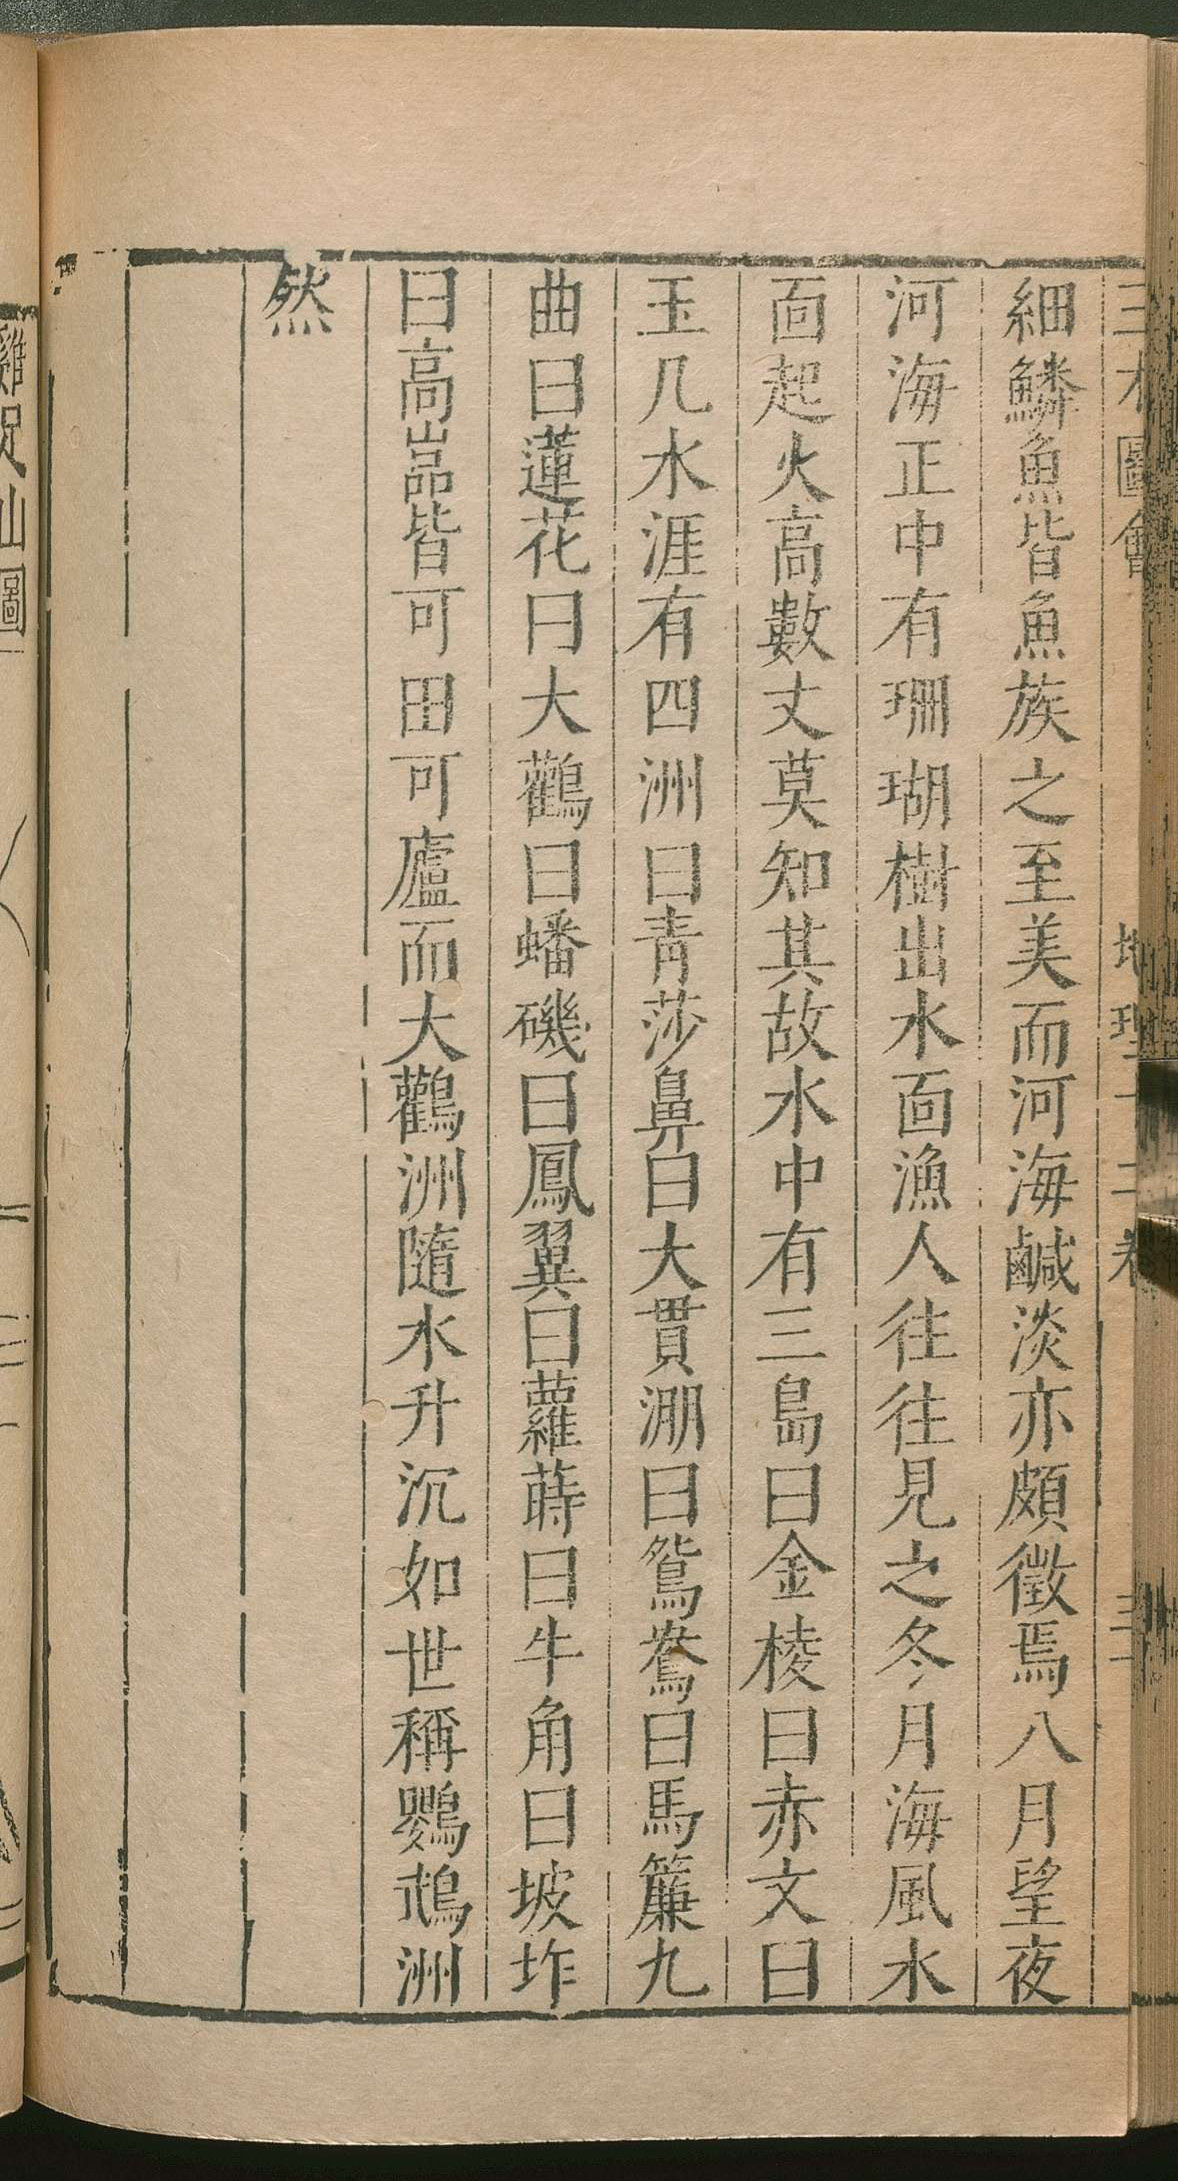 三才圖會 地理十二卷
細鱗魚皆魚族之至美而河海鹹淡亦頗徵焉八月望夜
河海正中有珊瑚樹出水面漁人往往見之冬月海風水
面起火高數丈莫知其故水中有三島曰金棱曰赤文曰
玉几水涯有四洲曰青莎鼻曰大貫淜曰鴛鴦曰馬簾九
曲曰蓮花曰大鸛曰蟠磯曰鳳翼曰蘿蒔曰牛角曰坡㘴
曰高嵓皆可田可廬而大鸛洲隨水升沉如世稱鸚鵡洲
然
雞足山圖